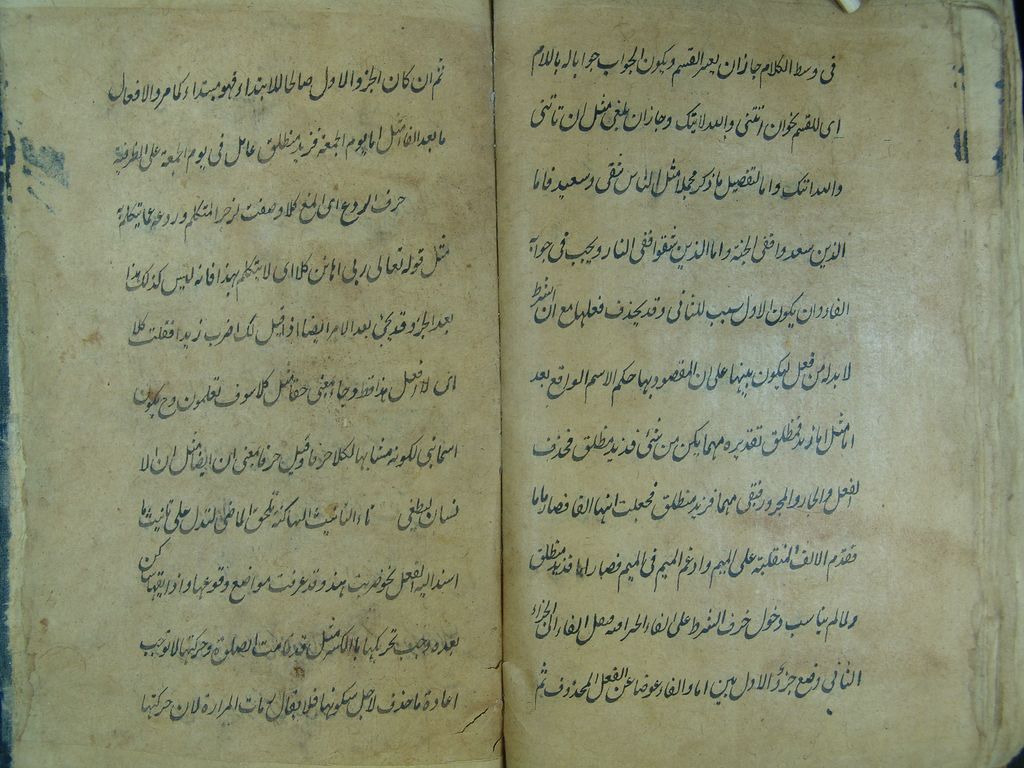 فى وسط الكلام جاز ان يعتبر القسم ويكون الجواب جوابا له باللام
اى للقسم نحو ان اتتنى والله لاتيتك وجاز ان يلغى مثل ان تاتنى
والله اتك واما لتفصيل ما ذكر مجملا مثل الناس شقى وسعيد فاما
الذين سعدوا ففى الجنة واما الذين شقوا ففى النار ويجب فى جوابه
الفاء وان يكون الاول سببا للثانى وقد يحذف فعلها مع ان الشرط
لا بد له من فعل ليكون تنبيها على ان المقصود بها حكم الاسم الواقع بعد
اما مثل اما زيد فمنطلق تقديره مهما يكن من شئ فزيد منطلق فحذف
الفعل والجار والمجرور فبقى مهما فزيد منطلق فجعلت الهاء الفا فصار ماما
فقدم الالف المنقلبة على الميم وادغم الميم فى الميم فصار اما فزيد منطلق
ولما لم يناسب دخول حرف الشرط على الفاء الجزائية نقل الفاء الى الجزاء
الثانى وضع جزؤ الاول بين اما والفاء عوضا عن الفعل المحذوف ثم
ثم ان كان الجزؤ الاول صالحا للابتداء فهو مبتداء كما مر والا فعامله
ما بعد الفاء مثل اما يوم الجمعة فزيد منطلق عامل فى يوم الجمعة على الظرفية
حرف الردع اى المنع كلا وضعت لزجر المتكلم وردعه عما يتكلم به
مثل قوله تعالى ربى اهانن كلا اى لا يتكلم بهذا فانه ليس كذلك هذا
بعد الخبر وقد يجئ بعد الامر ايضا اذا قيل لك اضرب زيدا فقلت كلا
اى لا افعل هذا قط وجاء بمعنى حقا مثل كلا سوف تعلمون وح يكون
اسما بنى لكونه مشابها لكلا حرفا وقيل حرفا بمعنى ان ايضا مثل ان الا
نسان ليطغى تاء التانيث الساكنة تلحق الماضى لتدل على تانيث ما
اسند اليه الفعل نحو ضربت هند وقد عرفت مواضع وقوعها واذا لقيها ساكن
بعدها وجب تحريكها بالكسر مثل قد قامت الصلوة وحركتها لا توجب
اعادة ما حذف لاجل سكونها فلا يقال رمات المراة لان حركتها